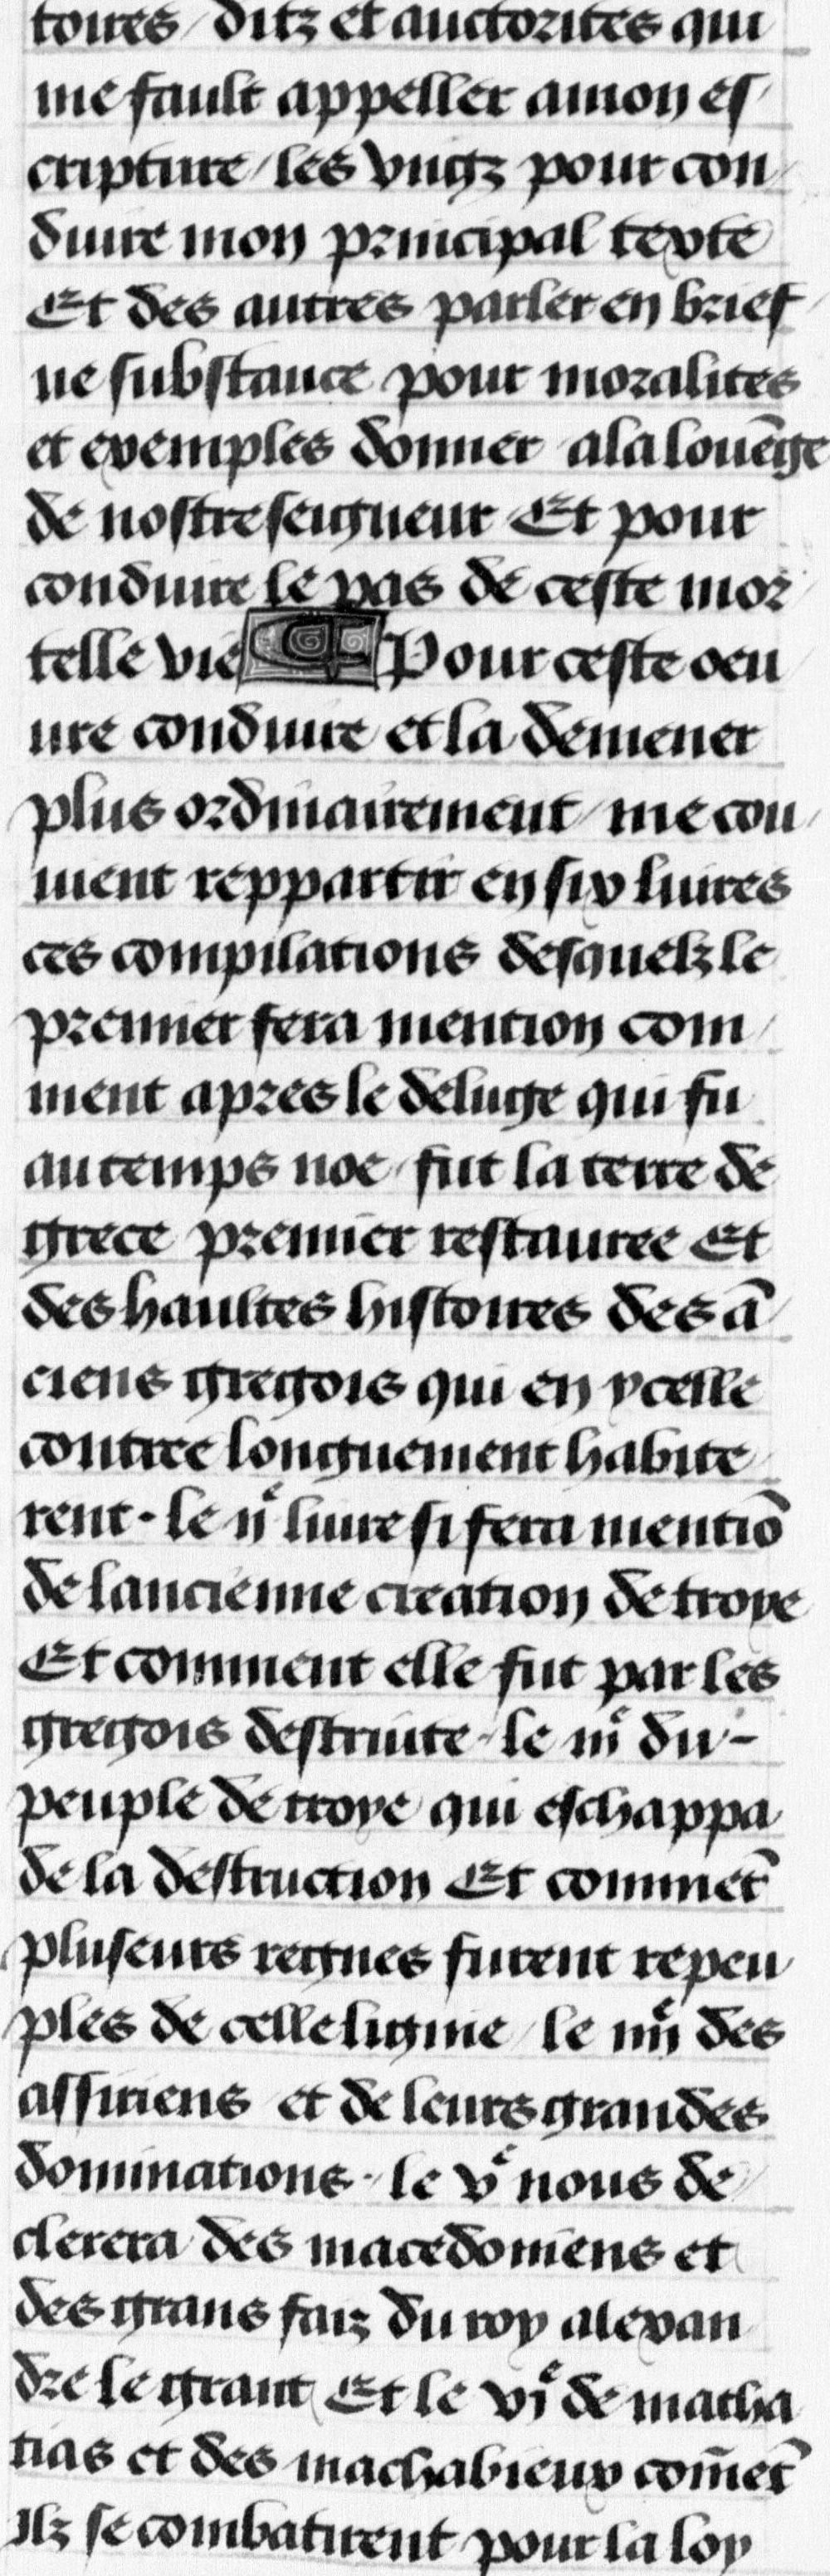 toires / ditz et auctorites qui
me fault appeller a mon es /
cripture / les vngz pour con /
duire mon principal texte
Et des autres parler en brief /
ue substance pour moralites
et exemples donner a la louēge
de nostre seigneur Et pour
conduire le pas de ceste mor /
telle vie Pour ceste oeu /
ure conduire et la demener
plus ordinairement / me con /
uient reppartir en six liures
ces compilations desquelz le
premier fera mention com /
ment apres le deluge qui fu
au temps noe / fut la terre de
grece premier restauree Et
des haultes histoires des ā /
ciens gregois qui en ycelle
contree longuement habite /
rent · le ijᵉ liure si fera mentiō
de lancienne creation de troye
Et comment elle fut par les
gregois destruite · le iijᵉ du -
peuple de troye qui eschappa
de la destruction Et commēt
pluseurs regnes furent repeu /
ples de celle lignie / le iiijᵉ des
assiriens et de leurs grandes
dominations · le vᵉ nous de /
clerera des macedoniens et
des grans faiz du roy alexan
dre le grant Et le vjᵉ de matha
tias et des machabieux com̄ēt
Ilz se combatirent pour la loy